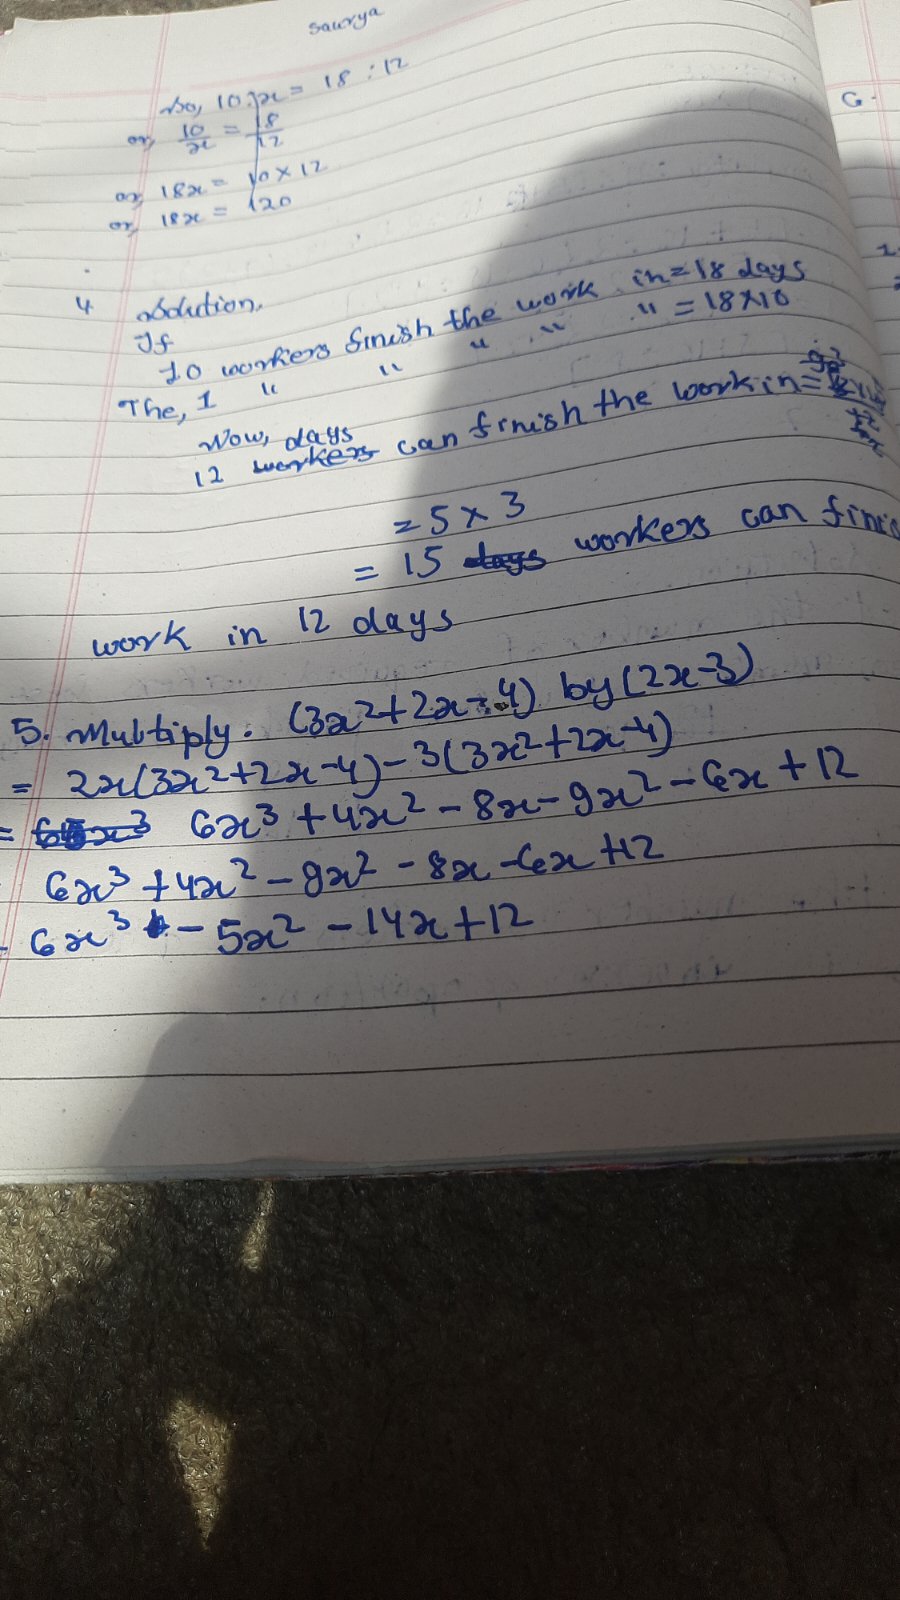 Saurya
So, 10:x = 18:12
or, 10/x = 18/12
or, 18x = 10×12
or, 18x = 120
4 Solution,
If
10 workers finish the work in = 18 days
The, 1 " " " " " = 18×10
Now, days
12 workers can finish the work in =
= 5×3
= 15 days workers can finis
work in 12 days
5. Multiply. (3x²+2x-4) by (2x-3)
= 2x(3x²+2x-4)-3(3x²+2x-4)
= 6x³+4x²-8x-9x²-6x+12
6x³+4x²-9x²-8x-6x+12
- 6x³-5x²-14x+12
G.